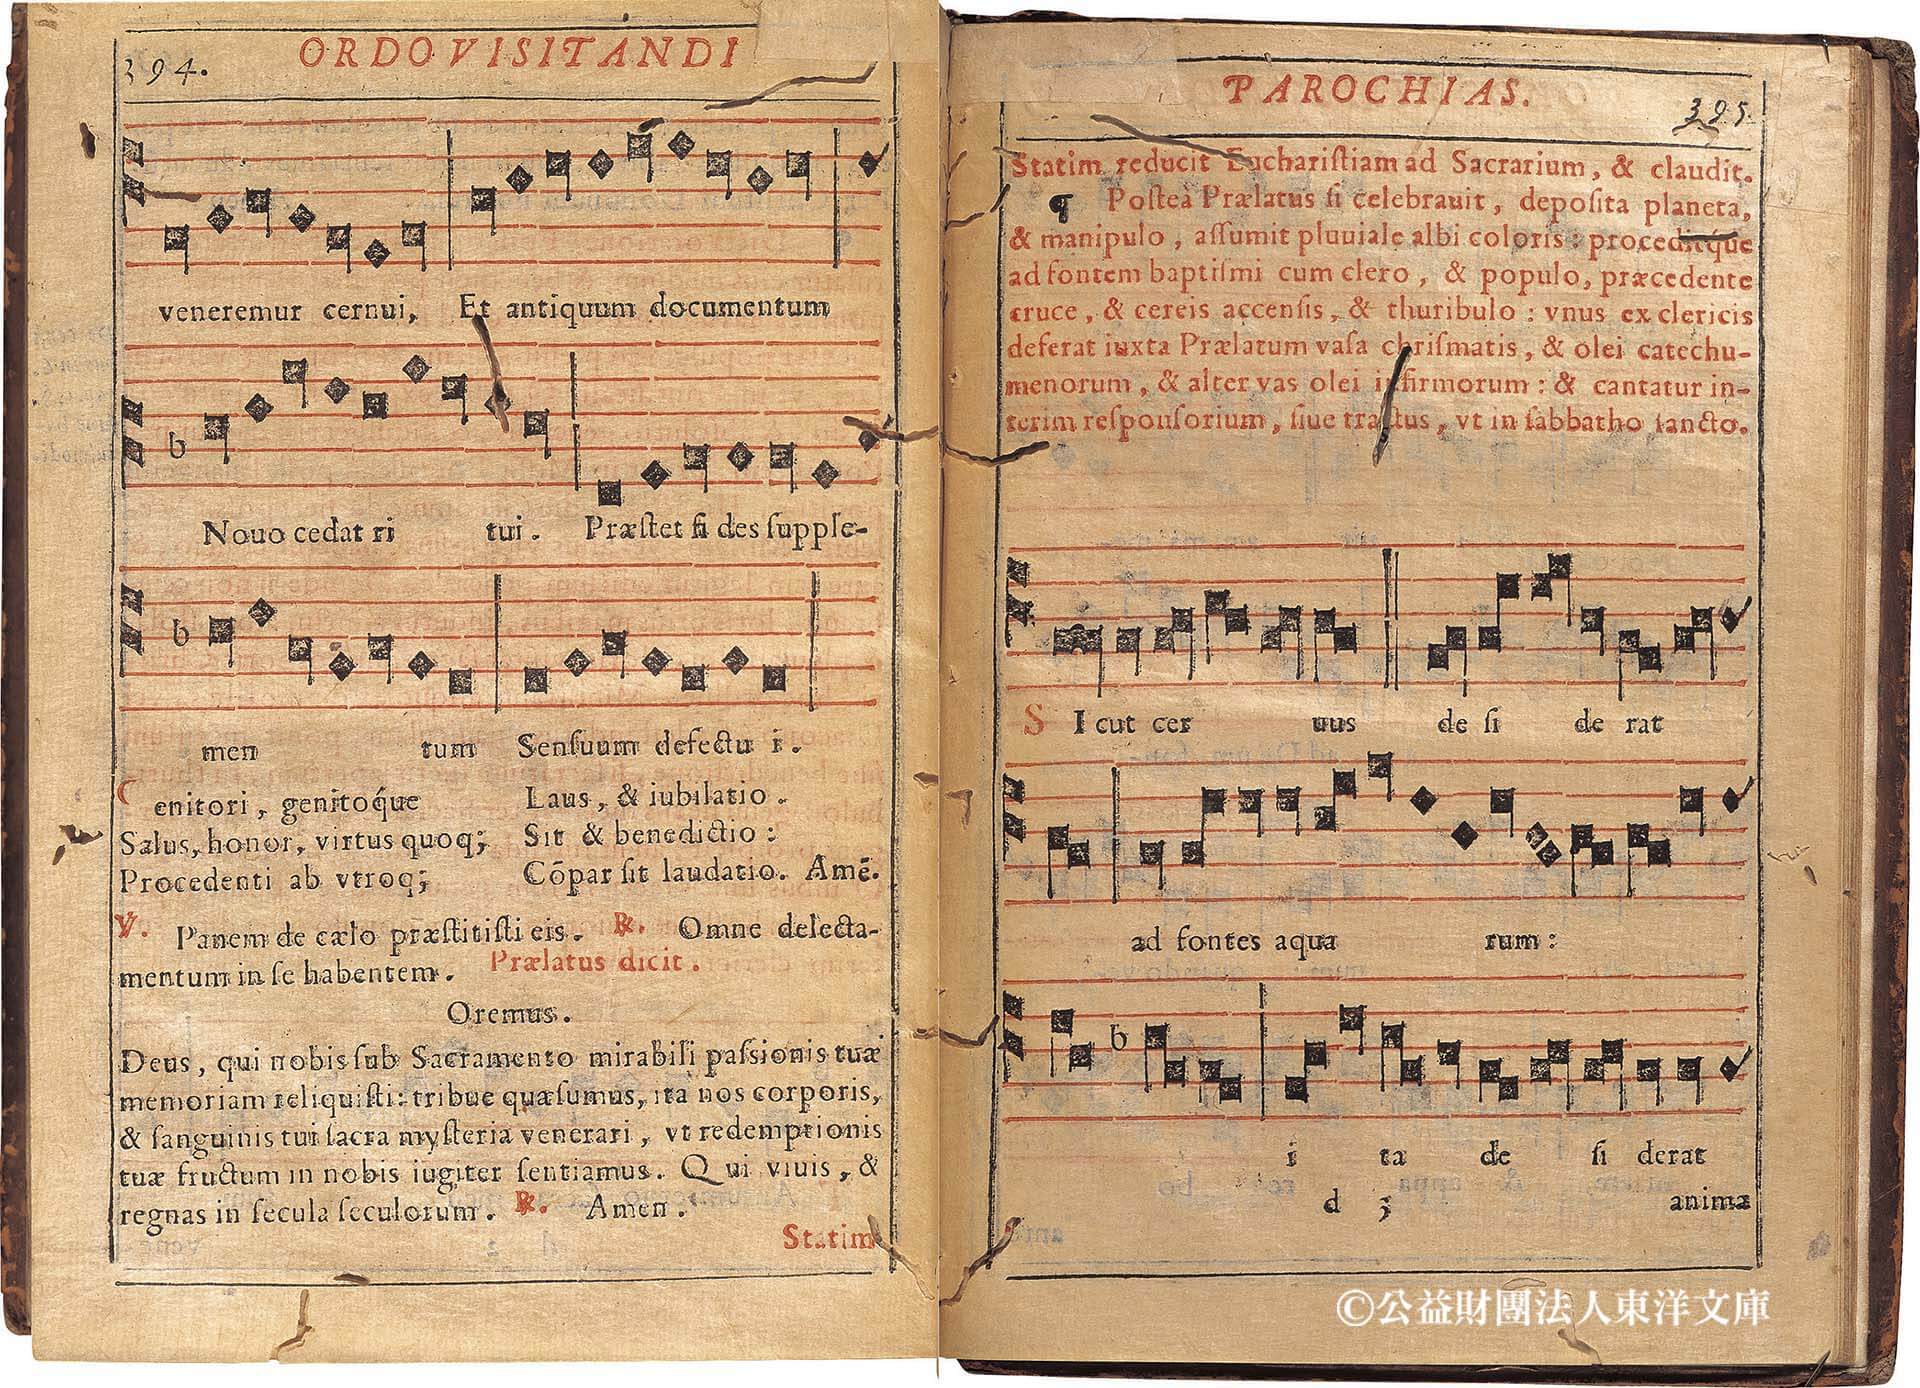 394.
ORDO VISITANDI
veneremur cernui, Et antiquum documentum
b
Nouo cedat ri tui. Præstet fi des supple-
b
men tum Sensuum defectu i.
enitori, genitoq́ue Laus, & iubilatio.
Salus, honor, virtus quoq; Sit & benedictio:
Procedenti ab vtroq; Cōpar sit laudatio. Amē.
℣. Panem de cælo præstitisti eis. ℟. Omne delecta-
mentum in se habentem. Prælatus dicit.
Oremus.
Deus, qui nobis sub Sacramento mirabili passionis tuæ
memoriam reliquisti: tribue quæsumus, ita nos corporis,
& sanguinis tui sacra mysteria venerari, vt redemptionis
tuæ fructum in nobis iugiter sentiamus. Qui viuis, &
regnas in secula seculorum. ℟. Amen.
Statim
PAROCHIAS.
395.
Statim reducit Eucharistiam ad Sacrarium, & claudit.
¶ Posteà Prælatus si celebrauit, deposita planeta,
& manipulo, assumit pluuiale albi coloris: proceditq́ue
ad fontem baptismi cum clero, & populo, præcedente
cruce, & cereis accensis, & thuribulo: vnus ex clericis
deferat iuxta Prælatum vasa chrismatis, & olei catechu-
menorum, & alter vas olei infirmorum: & cantatur in-
terim responsorium, siue tractus, vt in sabbatho sancto.
S I cut cer uus de si de rat
ad fontes aqua rum:
b
i ta de si derat
d 3 anima
©公益財團法人東洋文庫